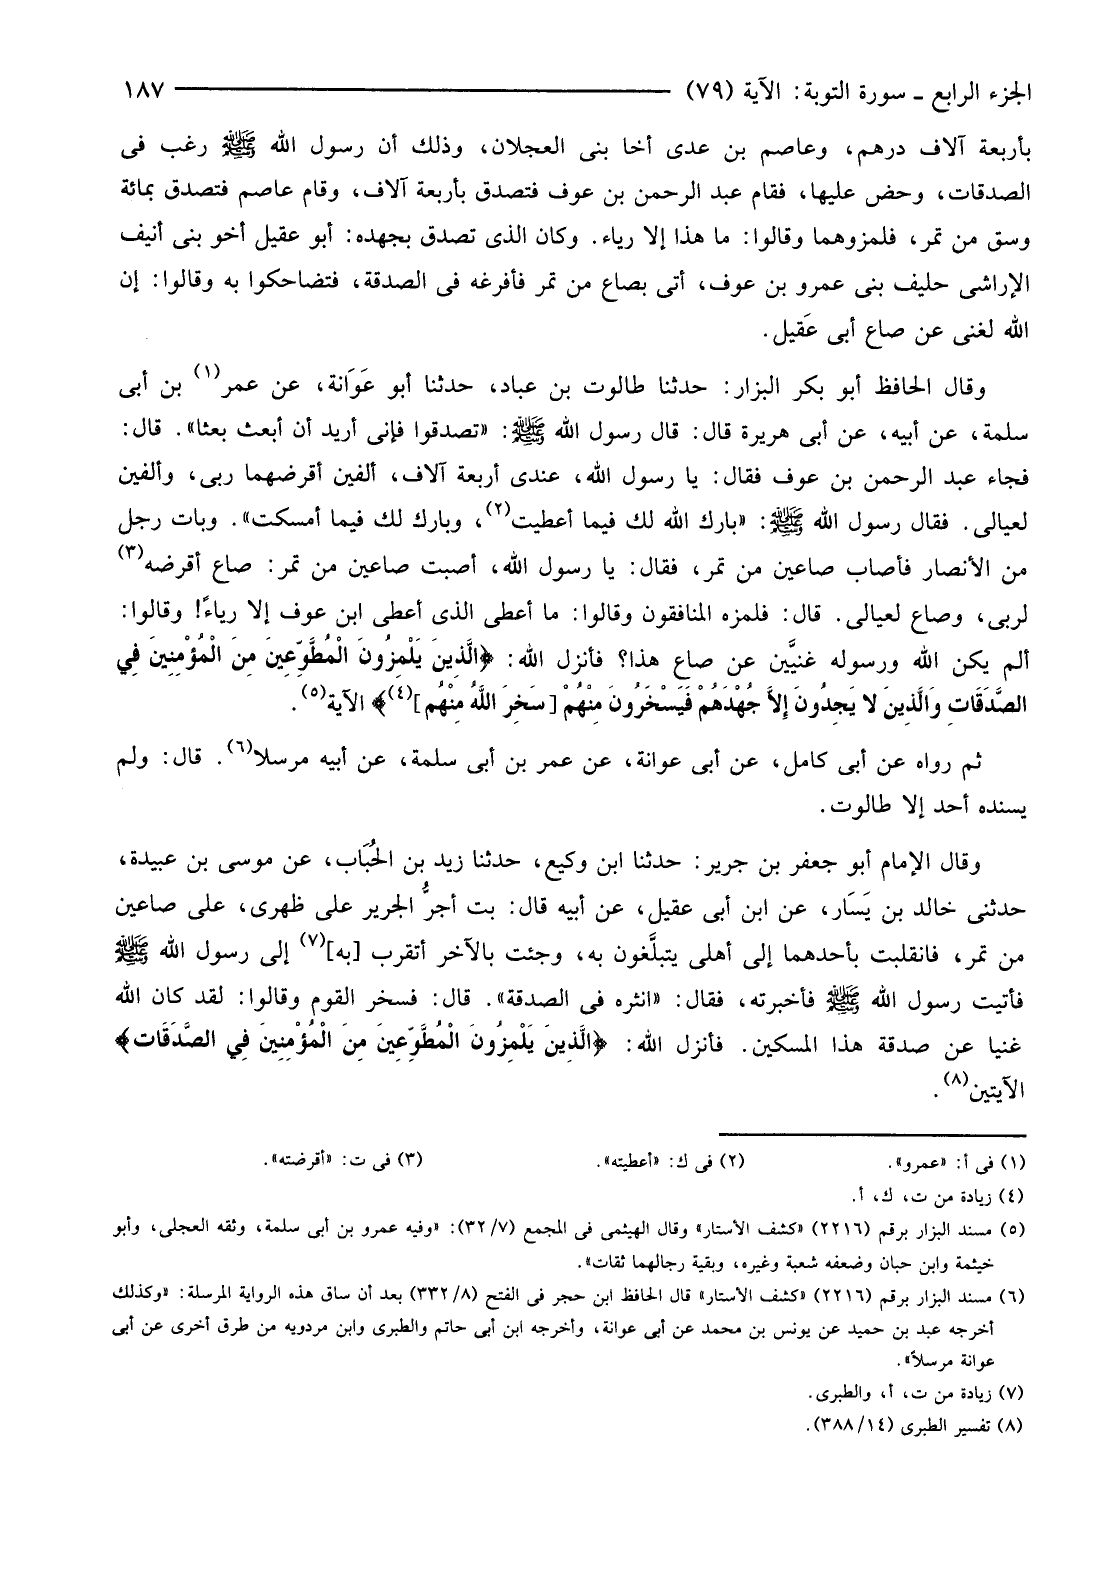 الجزء الرابع ـ سورة التوبة: الآية (٧٩) ١٨٧
بأربعة آلاف درهم، وعاصم بن عدى أخا بنى العجلان، وذلك أن رسول الله ﷺ رغب فى
الصدقات، وحض عليها، فقام عبد الرحمن بن عوف فتصدق بأربعة آلاف، وقام عاصم فتصدق بمائة
وسق من تمر، فلمزوهما وقالوا: ما هذا إلا رياء. وكان الذى تصدق بجهده: أبو عقيل أخو بنى أنيف
الإراشى حليف بنى عمرو بن عوف، أتى بصاع من تمر فأفرغه فى الصدقة، فتضاحكوا به وقالوا: إن
الله لغنى عن صاع أبى عَقيل.
وقال الحافظ أبو بكر البزار: حدثنا طالوت بن عباد، حدثنا أبو عَوَانة، عن عمر(١) بن أبى
سلمة، عن أبيه، عن أبى هريرة قال: قال رسول الله ﷺ: «تصدقوا فإنى أريد أن أبعث بعثا». قال:
فجاء عبد الرحمن بن عوف فقال: يا رسول الله، عندى أربعة آلاف، ألفين أقرضهما ربى، وألفين
لعيالى. فقال رسول الله ﷺ: «بارك الله لك فيما أعطيت(٢)، وبارك لك فيما أمسكت». وبات رجل
من الأنصار فأصاب صاعين من تمر، فقال: يا رسول الله، أصبت صاعين من تمر: صاع أقرضه(٣)
لربى، وصاع لعيالى. قال: فلمزه المنافقون وقالوا: ما أعطى الذى أعطى ابن عوف إلا رياءً! وقالوا:
ألم يكن الله ورسوله غنيَّين عن صاع هذا؟ فأنزل الله: ﴿الَّذِينَ يَلْمِزُونَ الْمُطَّوِّعِينَ مِنَ الْمُؤْمِنِينَ فِي
الصَّدَقَاتِ وَالَّذِينَ لا يَجِدُونَ إِلاَّ جُهْدَهُمْ فَيَسْخَرُونَ مِنْهُمْ [سَخِرَ اللَّهُ مِنْهُم](٤)﴾ الآية(٥).
ثم رواه عن أبى كامل، عن أبى عوانة، عن عمر بن أبى سلمة، عن أبيه مرسلا(٦). قال: ولم
يسنده أحد إلا طالوت.
وقال الإمام أبو جعفر بن جرير: حدثنا ابن وكيع، حدثنا زيد بن الحُبَاب، عن موسى بن عبيدة،
حدثنى خالد بن يَسَار، عن ابن أبى عقيل، عن أبيه قال: بت أجرُّ الجرير على ظهرى، على صاعين
من تمر، فانقلبت بأحدهما إلى أهلى يتبلَّغون به، وجئت بالآخر أتقرب [به](٧) إلى رسول الله ﷺ
فأتيت رسول الله ﷺ فأخبرته، فقال: «انثره فى الصدقة». قال: فسخر القوم وقالوا: لقد كان الله
غنيا عن صدقة هذا المسكين. فأنزل الله: ﴿الَّذِينَ يَلْمِزُونَ الْمُطَّوِّعِينَ مِنَ الْمُؤْمِنِينَ فِي الصَّدَقَاتِ﴾
الآيتين(٨).
(١) فى أ: «عمرو». (٢) فى ك: «أعطيته». (٣) فى ت: «أقرضته».
(٤) زيادة من ت، ك، أ.
(٥) مسند البزار برقم (٢٢١٦) «كشف الأستار» وقال الهيثمى فى المجمع (٣٢/٧): «وفيه عمرو بن أبى سلمة، وثقه العجلى، وأبو
خيثمة وابن حبان وضعفه شعبة وغيره، وبقية رجالهما ثقات».
(٦) مسند البزار برقم (٢٢١٦) «كشف الأستار» قال الحافظ ابن حجر فى الفتح (٣٣٢/٨) بعد أن ساق هذه الرواية المرسلة: «وكذلك
أخرجه عبد بن حميد عن يونس بن محمد عن أبى عوانة، وأخرجه ابن أبى حاتم والطبرى وابن مردويه من طرق أخرى عن أبى
عوانة مرسلاً».
(٧) زيادة من ت، أ، والطبرى.
(٨) تفسير الطبرى (٣٨٨/١٤).